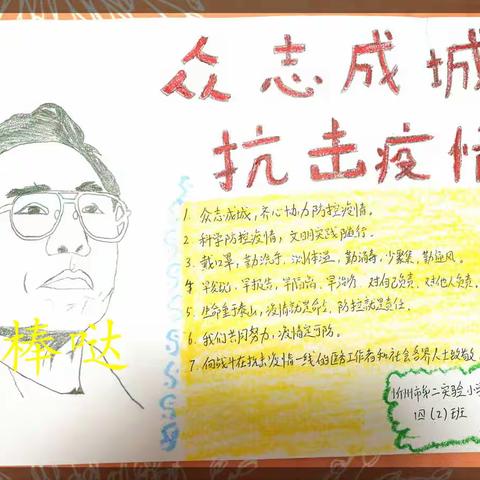 众志成城
抗击疫情
1. 众志成城，齐心协力防控疫情。
2. 科学防控疫情，文明实践随行。
3. 戴口罩，勤洗手，测体温，勤消毒，少聚集，勤通风。
4. 早发现、早报告、早隔离、早治疗、对自己负责、对他人负责。
5. 生命重于泰山，疫情就是命令，防控就是责任。
6. 我们共同努力，疫情定可防。
7. 向战斗在抗击疫情一线的医务工作者和社会各界人士致敬
棒哒
忻州市第二实验小学
四（2）班